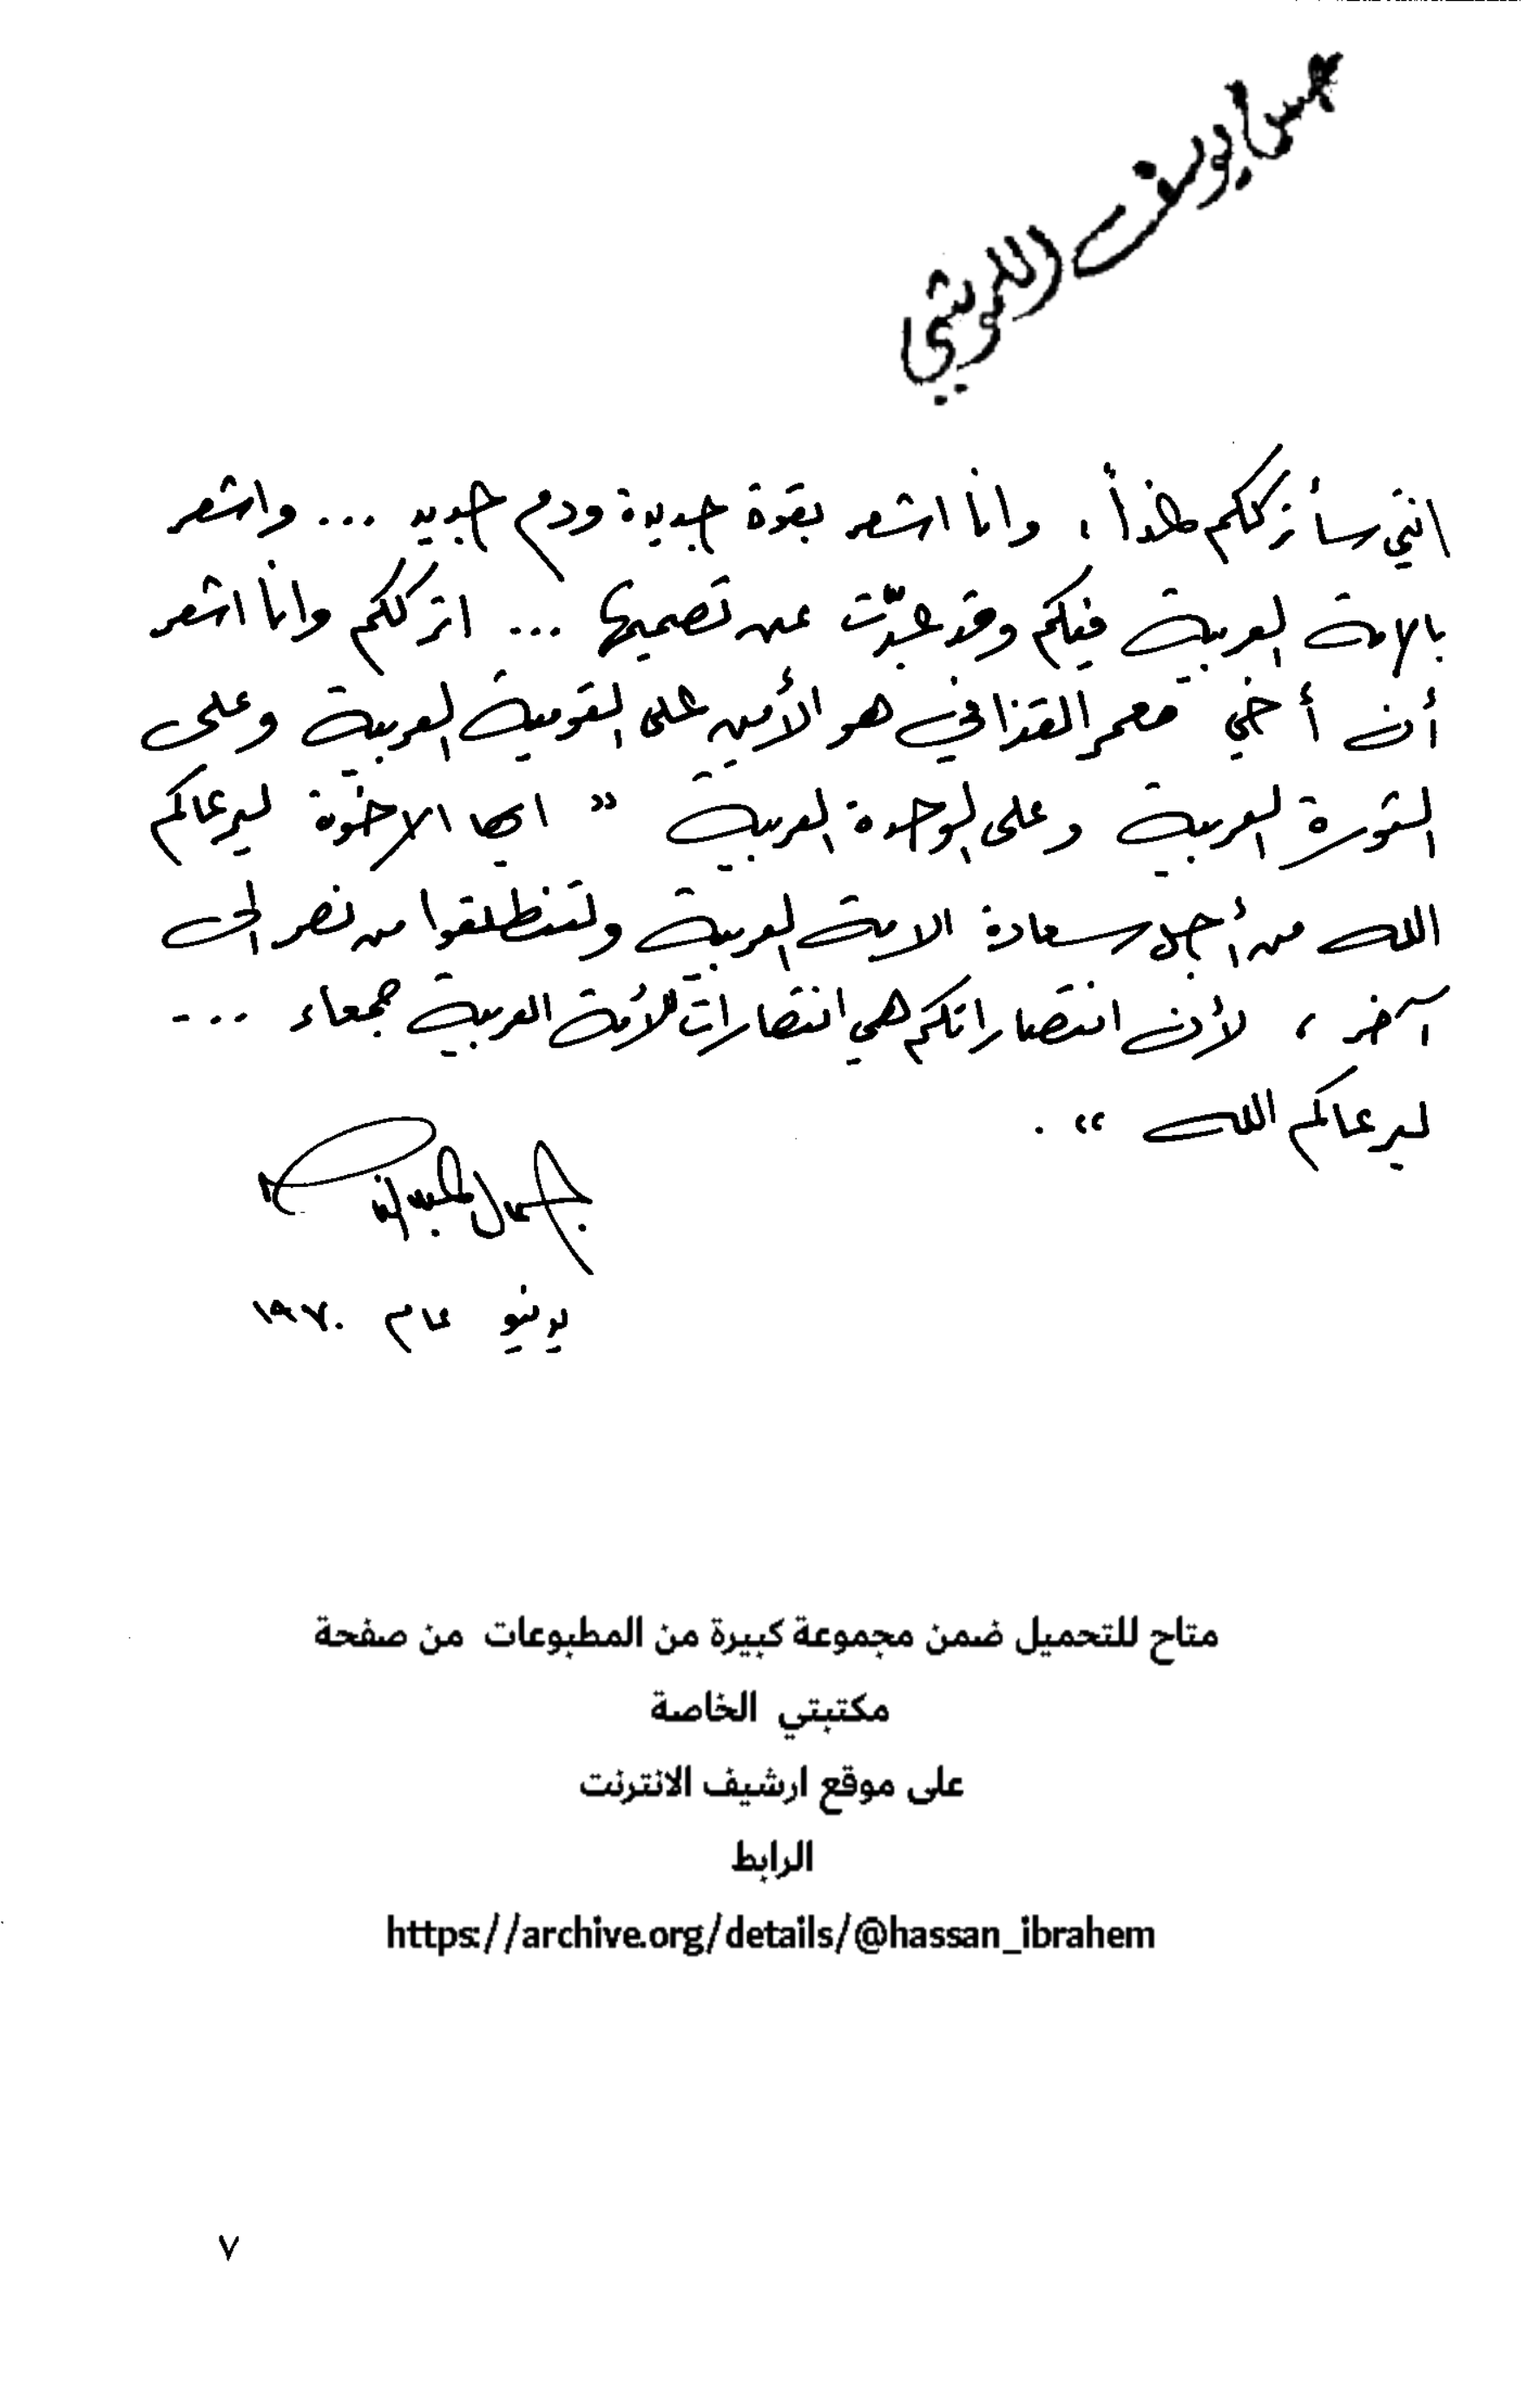 يوسف
انني سأترككم غداً، وانا اشعر بقوة جديدة ودم جديد ... واشعر
بالامة العربية فيكم وقد عبّرت عن تصميمها ... اترككم وانا اشعر
أن أخي معمر القذافي هو الأمين على القومية العربية وعلى
الثورة العربية وعلى الوحدة العربية " ايها الاخوة ليرعاكم
الله من أجل سعادة الامة العربية ولتنطلقوا من نصر الى
آخر ، لأن انتصاراتكم هي انتصارات للأمة العربية جمعاء ...
ليرعاكم الله " .
جمال عبد الناصر
يونيو عام ١٩٧٠
متاح للتحميل ضمن مجموعة كبيرة من المطبوعات من صفحة
مكتبتي الخاصة
على موقع ارشيف الانترنت
الرابط
https://archive.org/details/@hassan_ibrahem
٧